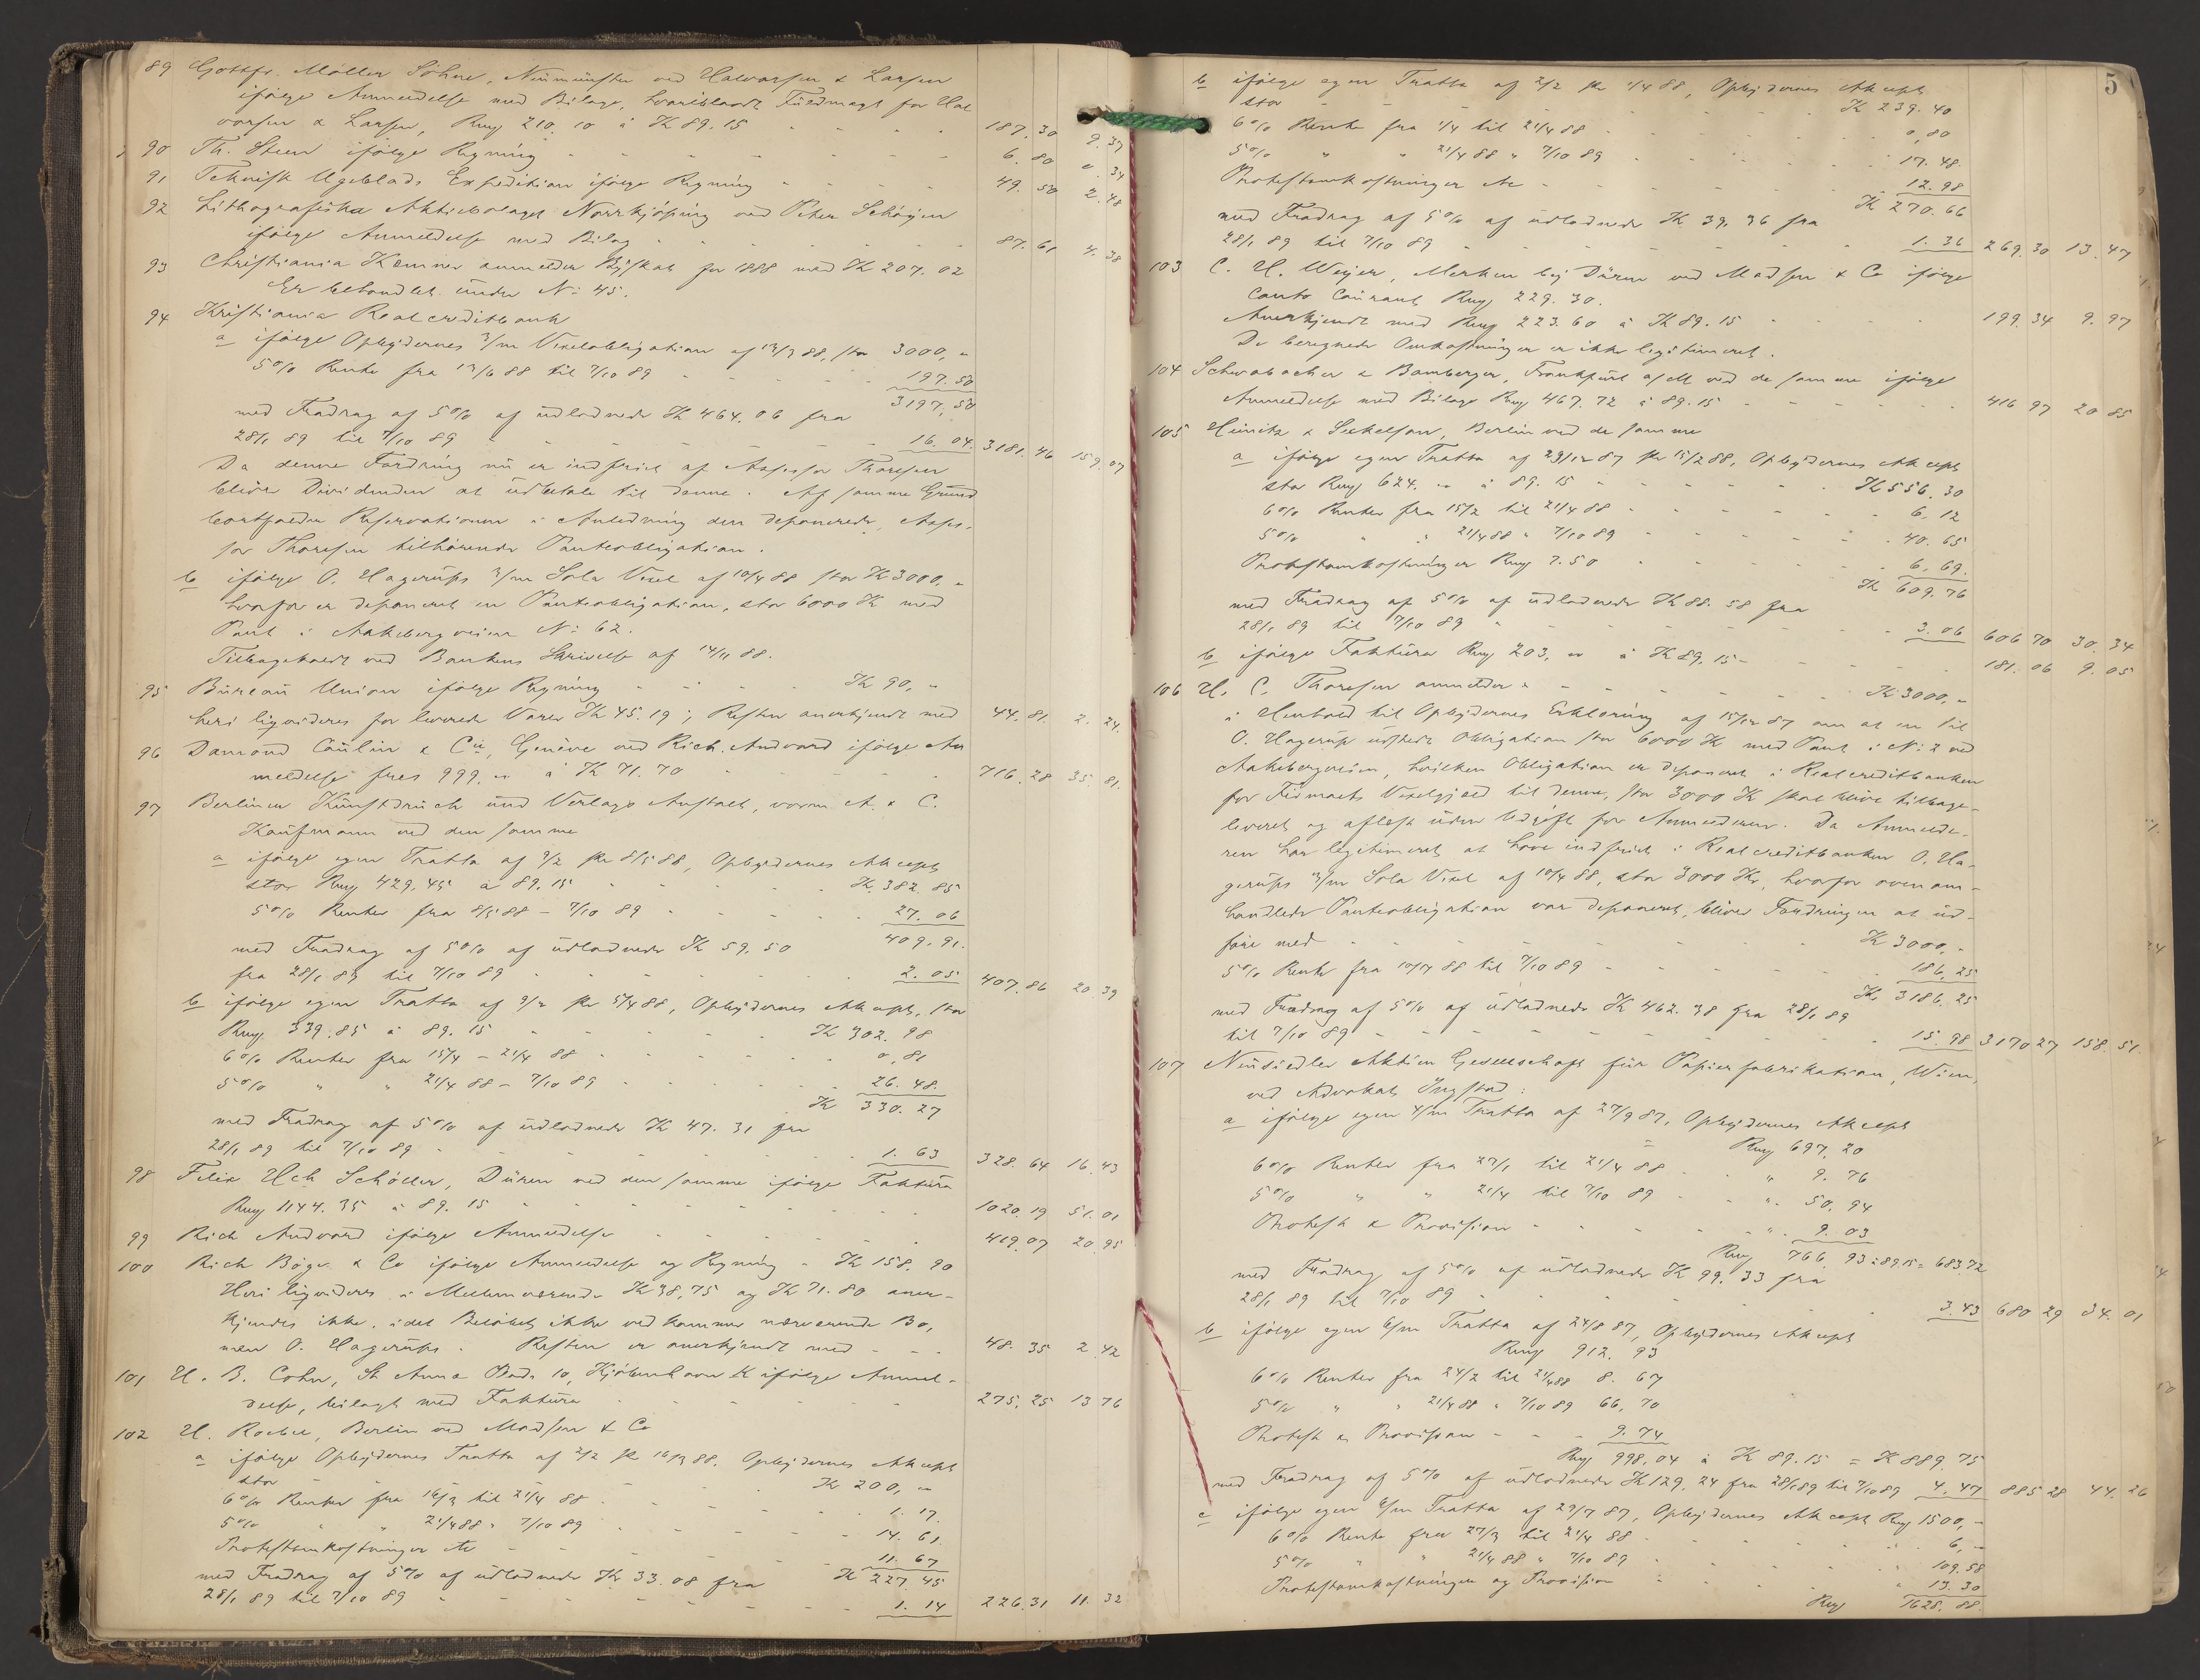 89 Gottfr. Möller Söhne, Neumünster ved Halvorsen & Larsen
ifølge Anmeldelse med Bilage, hvoriblandt Fuldmagt for Hal
vorsen & Larsen, Rmg 210.10 à K 89.15 187.30 9.37
90 Th. Steen ifølge Regning 6.80 0.34
91 Teknisk Ugeblads Expedition ifølge Regning 49.50 2.48
92 Lithografiska Aktiebolaget Norrkjöping ved Peter Schøyen
ifølge Anmeldelse med Bilag 87.61 4.38
93 Christiania Kemner anmelder Byskat for 1888 med K 207.02
Er behandlet under No 45.
94 Kristiania Realcreditbank
a ifølge Opbydernes 3/m Vexelobligation af 13/3 88, stor 3000, "
5% Rente fra 13/6 88 til 7/10 89 197.50
3197,50
med Fradrag af 5% af udlodnede K 464.06 fra
28/1 89 til 7/10 89 16.04. 3181.46 159.07
Da denne Fordring nu er indfriet af Assessor Thoresen
bliver Dividenden at udbetale til denne. Af samme Grund
bortfalder Reservationen i Anledning den deponerede, Asses-
sor Thoresen tilhørende Panteobligation.
b ifølge O. Hagerups 3/m Sola Vexel af 10/4 88 stor K 3000, "
hvorfor er deponeret en Panteobligation, stor 6000 K med
Pant i Aakebergveien No 62.
Tilbagekaldt ved Bankens Skrivelse af 14/11 88.
95 Bureau Union ifølge Regning K 90, "
heri ligvideres for leverede Varer K 45.19; Resten anerkjendt med 44.81. 2.24.
96 Damond Coulin & Cie, Genève ved Rich. Andvord ifølge An
meldelse frcs 999. " à K 71.70 716.28 35.81.
97 Berliner Kunstdruck und Verlags Anstalt, vorm. A. & C.
Kaufmann ved den samme
a ifølge egen Tratta af 9/2 pr 8/5 88, Opbydernes Akcept
stor Rmg 429.45 à 89.15 K. 382.85
5% Renter fra 8/5 88 - 7/10 89 27.06
409.91.
med Fradrag af 5% af udlodnede K 59.50
fra 28/1 89 til 7/10 89 2.05 407.86 20.39
b ifølge egen Tratta af 9/2 pr 5/4 88, Opbydernes Akcept, stor
Rmg. 339.85 à 89.15 K 302.98
6% Renter fra 15/4 - 21/4 88 0,81
5% " " 21/4 88 - 7/10 89 26.48.
K 330.27
med Fradrag af 5% af udlodnede K 47.31 fra
28/1 89 til 7/10 89 1.63 328.64 16.43
98 Felix Hch Schöller, Düren ved den samme ifølge Faktura
Rmg 1144.35 à 89.15 1020.19 51.01
99 Rich Andvord ifølge Anmeldelse 419.07 20.95
100 Rich Bøge & Co ifølge Anmeldelse og Regning - K 158.90
Heri ligvideres i Mellemværende K 38,75 og K 71.80 aner-
kjendes ikke, idet Beløbet ikke vedkommer nærværende Bo,
men O. Hagerups. Resten er anerkjendt med 48.35 2.42
101 H. B. Cohn, St Anna Plads 10, Kjøbenhavn K ifølge Anmel-
delse, bilagt med Faktura 275.25 13.76
102 H. Roebel, Berlin ved Madsen & Co
a ifølge Opbydernes Tratta af 2/2 pr 16/3 88. Opbydernes Akcept
stor K 200, "
6% Renter fra 16/3 til 21/4 88 1.17.
5% " " 21/4 88 " 7/10 89 14.61.
Protestomkostninger etc 11.67
med Fradrag af 5% af udlodnede K 33.08 fra K 227.45
28/1 89 til 7/10 89 1.14 226.31 11.32
5
b ifølge egen Tratta af 2/2 pr 1/4 88, Opbydernes Akcept
stor K 239.40
6% Rente fra 1/4 til 21/4 88 0,80
5% " " 21/4 88 " 7/10 89 17.48.
Protestomkostninger etc 12.98
K 270.66
med Fradrag af 5% af udlodnede K 39.36 fra
28/1 89 til 7/10 89 1.36 269.30 13.47
103 C. H. Weyer, Merken bej Düren ved Madsen & Co ifølge
Conto Courant Rmg 229.30.
Anerkjendt med Rmg 223.60 à K 89.15 199.34 9.97
De beregnede Omkostninger er ikke legitimeret.
104 Schwabacher & Bamberger, Frankfurt a/M ved de samme ifølge
Anmeldelse med Bilage Rmg 467.72 à 89.15 416.97 20.85
105 Heimitz & Seckelson, Berlin ved de samme
a ifølge egen Tratta af 29/12 87 pr 15/2 88, Opbydernes Akcept
stor Rmg 624. " à 89.15 K 556.30
6% Renter fra 15/2 til 21/4 88 6,12
5% " " 21/4 88 " 7/10 89 40.65
Protestomkostninger Rmg 7.50 6,69.
K 609.76
med Fradrag af 5% af udlodnede K 88.58 fra
28/1 89 til 7/10 89 3.06 606.70 30.34
b ifølge Faktura Rmg 203, " à K 89.15 181.06 9.05
106 H. C. Thoresen anmelder: K 3000, "
i Henhold til Opbydernes Erklæring af 15/12 87 om at en til
O. Hagerup udstedt Obligation stor 6000 K med Pant i No 2 ved
Aakebergveien, hvilken Obligation er deponeret i Realcreditbanken
for Firmaets Vexelgjæld til denne, stor 3000 K skal blive tilbage-
leveret og aflæst uden Udgift for Anmelderen. Da Anmelde-
ren har legitimeret at have indfriet i Realcreditbanken O. Ha-
gerups 3/m Sola Vexel af 10/4 88, stor 3000 Kr, hvorfor ovenom-
handlede Panteobligation var deponeret, bliver Fordringen at ud-
føre med K 3000, "
5% Rente fra 10/7 88 til 7/10 89 186,25
K. 3186.25
med Fradrag af 5% af udlodnede K 462.38 fra 28/1 89
til 7/10 89 15.98 3170.27 158.51.
107 Neusiedler Aktien Gesellschaft für Papierfabrikation, Wien,
ved Advokat Yngstad:
a ifølge egen 4/m Tratta af 27/9 87, Opbydernes Akcept
Rmg 697,20
6% Renter fra 27/1 til 21/4 88 " 9.76
5% " " 21/4 til 7/10 89 " 50,94
Protest & Provision " 9.03
Rmg 766.93 à 89.15 = 683.72
med Fradrag af 5% af udlodnede K 99.33 fra
28/1 89 til 7/10 89 3.43 680.29 34.01
b ifølge egen 6/m Tratta af 24/8 87, Opbydernes Akcept
Rmg 912.93
6% Renter fra 24/2 til 21/4 88 8.67
5% " " 21/4 88 " 7/10 89 66,70
Protest & Provision 9.74
Rmg 998.04 à K 89.15 = K 889.75
med Fradrag af 5% af udlodnede K 129.24 fra 28/1 89 til 7/10 89 4.47 885.28 44.26
c ifølge egen Tratta af 29/7 87, Opbydernes Akcept Rmg 1500, "
6% Rente fra 27/3 til 21/4 88 6, "
5% " " 21/4 88 " 7/10 89 109.58
Protestomkostninger og Provision 13.30
Rmg 1628.88.